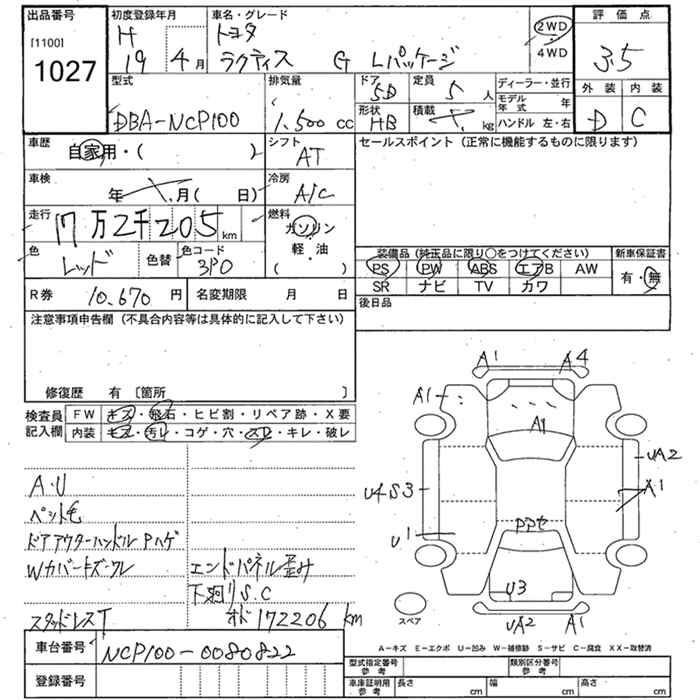 出品番号
[1100]
1027
初度登録年月
H
19 4月
車名・グレード
トヨタ
ラクティス G Lパッケージ
2WD
4WD
評価点
3.5
外装 内装
D C
型式
DBA-NCP100
排気量
1,500 cc
ドア
5D
定員
5 人
形状
HB
積載
kg
ディーラー・並行
モデル年式 年
ハンドル 左・右
車歴
自家用・( )
シフト
AT
セールスポイント (正常に機能するものに限ります)
車検
年 月( 日)
冷房
A/C
走行
17万2千205km
燃料
ガソリン
軽・油
( )
色
レッド
色替
色コード
3P0
装備品 (純正品に限り○をつけてください)
新車保証書
PS PW ABS エアB AW
有・無
SR ナビ TV カワ
R券 10,670円
名変期限 月 日
後日品
注意事項申告欄 (不具合内容等は具体的に記入して下さい)
修復歴 有 〔箇所 〕
検査員記入欄
FW キズ・飛石・ヒビ割・リペア跡・X要
内装 キズ・汚レ・コゲ・穴・スレ・キレ・破レ
A1 A4
A1
A1
UA2
U4S3
A1
U1
U3
UA2 A1
スペア
A.U
ペット毛
ドアアウターハンドルPハゲ
Wカバートズレ
エンドパネル歪み
下廻りS.C
スタッドレスT
オド172206km
A-キズ E-エクボ U-凹み W-補修跡 S-サビ C-腐食 XX-取替済
車台番号 NCP100-0080822
登録番号
型式指定番号参考
類別区分番号参考
車庫証明用参考
長さ cm
幅 cm
高さ cm